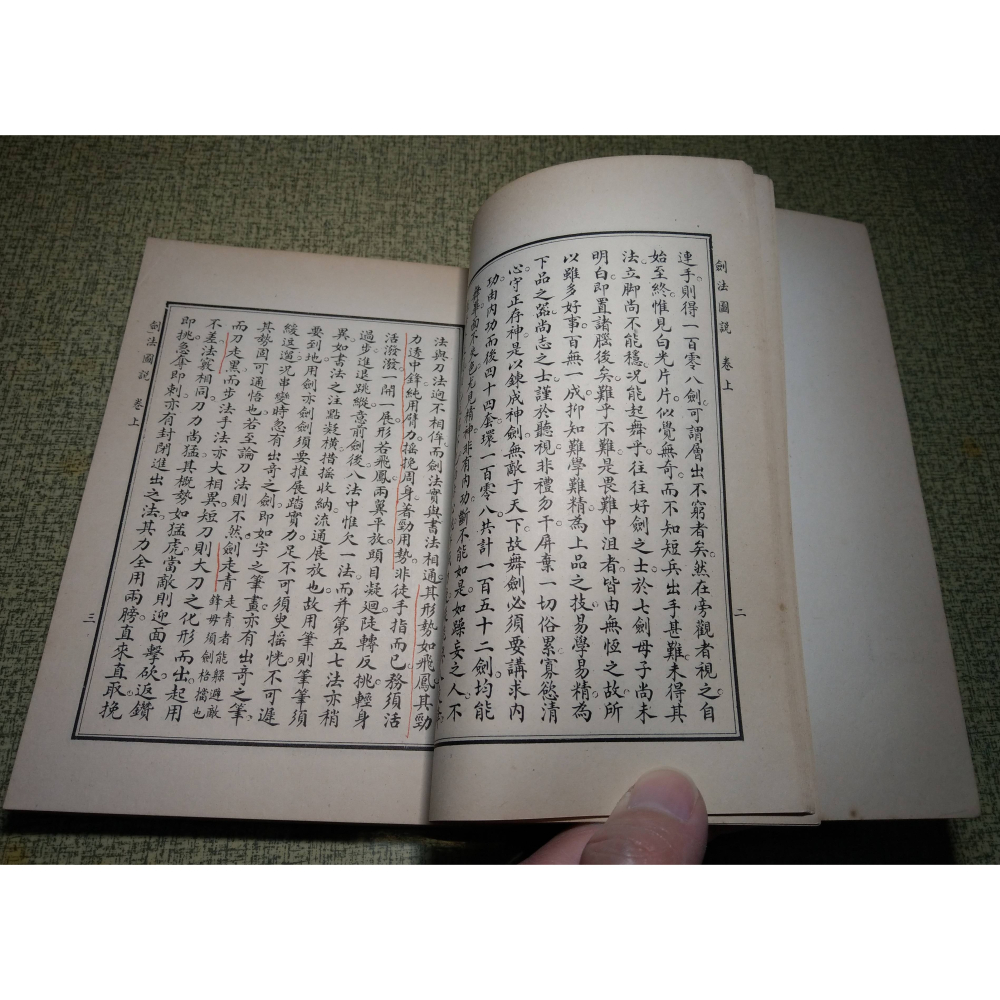 劍法圖說 卷上
連手則得一百零八劍可謂層出不窮者矣然在旁觀者視之自
始至終惟見白光片片似覺無奇而不知短兵出手甚難未得其
法立脚尚不能穩況能起舞乎往往好劍之士於七劍母子尚未
明白即置諸腦後矣難乎不難是畏難中沮者皆由無恆之故所
以雖多好事百無一成抑知難學難精為上品之技易學易精為
下品之器尚志之士謹於聽視非禮勿干屏棄一切俗累寡慾清
心守正存神是以鍊成神劍無敵于天下故舞劍必須要講求內
功由內功而後四十四套環一百零八共計一百五十二劍均能
面不失色尤見精神非有內功斷不能如是如躁妄之人不
二
法與刀法逈不相侔而劍法實與書法相通其形勢如飛鳳其勁
力透中鋒純用臂力搖挽周身着勁用勢非徒手指而已務須活
活潑潑一開一展形若飛鳳兩翼平放頭目凝迴陡轉反挑輕身
過步進退跳縱意前劍後八法中惟欠一法而并第五七法亦稍
異如書法之注點凝橫措搖收納流通展放也故用筆則筆筆須
要到地用劍亦劍劍須要推展踏實力足不可須臾搖恍不可遲
緩逗遛況串變時忽有出奇之劍即如字之筆畫亦有出奇之筆
其勢固可通悟也若至論刀法則不然劍走青走青者能躲避敵鋒毋須劍格擋也
而刀走黑而步法手法亦大相異短刀則大刀之化形而出起用
不差法寂相同刀刀尚猛其概勢如猛虎當敵則迎面擊砍返鑽
即挑急奪即刺亦有封閉進出之法其力全用兩膀直來直取挽
劍法圖說 卷上
三